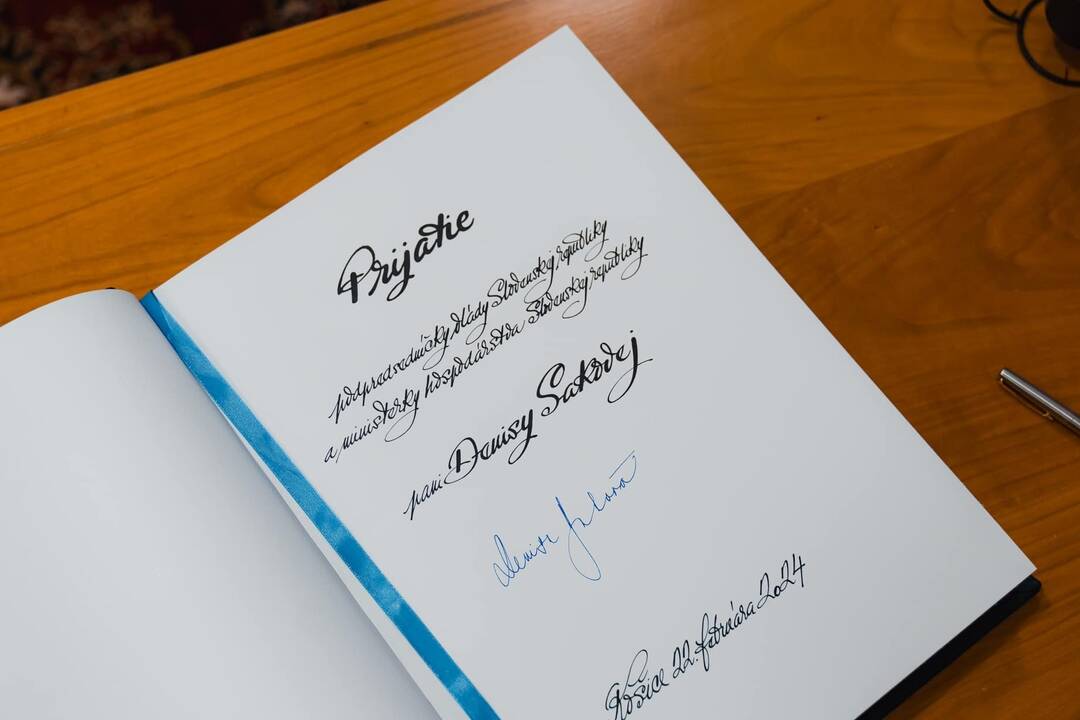 Prijatie
podpredsedníčky vlády Slovenskej republiky
a ministerky hospodárstva Slovenskej republiky
pani Denisy Sakovej
Denisa Saková
Košice 22. februára 2024